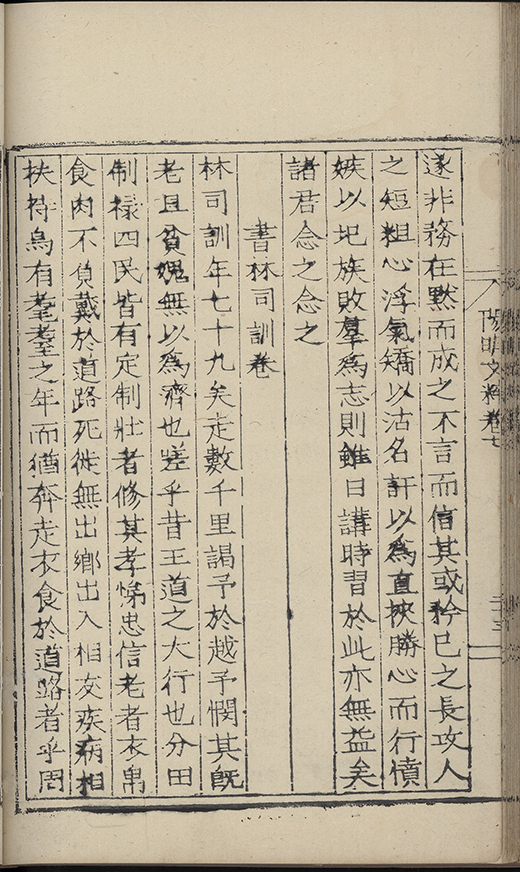 陽明文粹卷七
二十三
遂非務在默而成之不言而信其或矜己之長攻人
之短粗心浮氣矯以沽名訐以為直挾勝心而行憤
嫉以圯族敗羣為志則雖日講時習於此亦無益矣
諸君念之念之
書林司訓卷
林司訓年七十九矣走數千里謁予於越予憫其既
老且貧媿無以為濟也嗟乎昔王道之大行也分田
制祿四民皆有定制壯者修其孝悌忠信老者衣帛
食肉不負戴於道路死徙無出鄉出入相友疾病相
扶持烏有耄耋之年而猶奔走衣食於道路者乎周